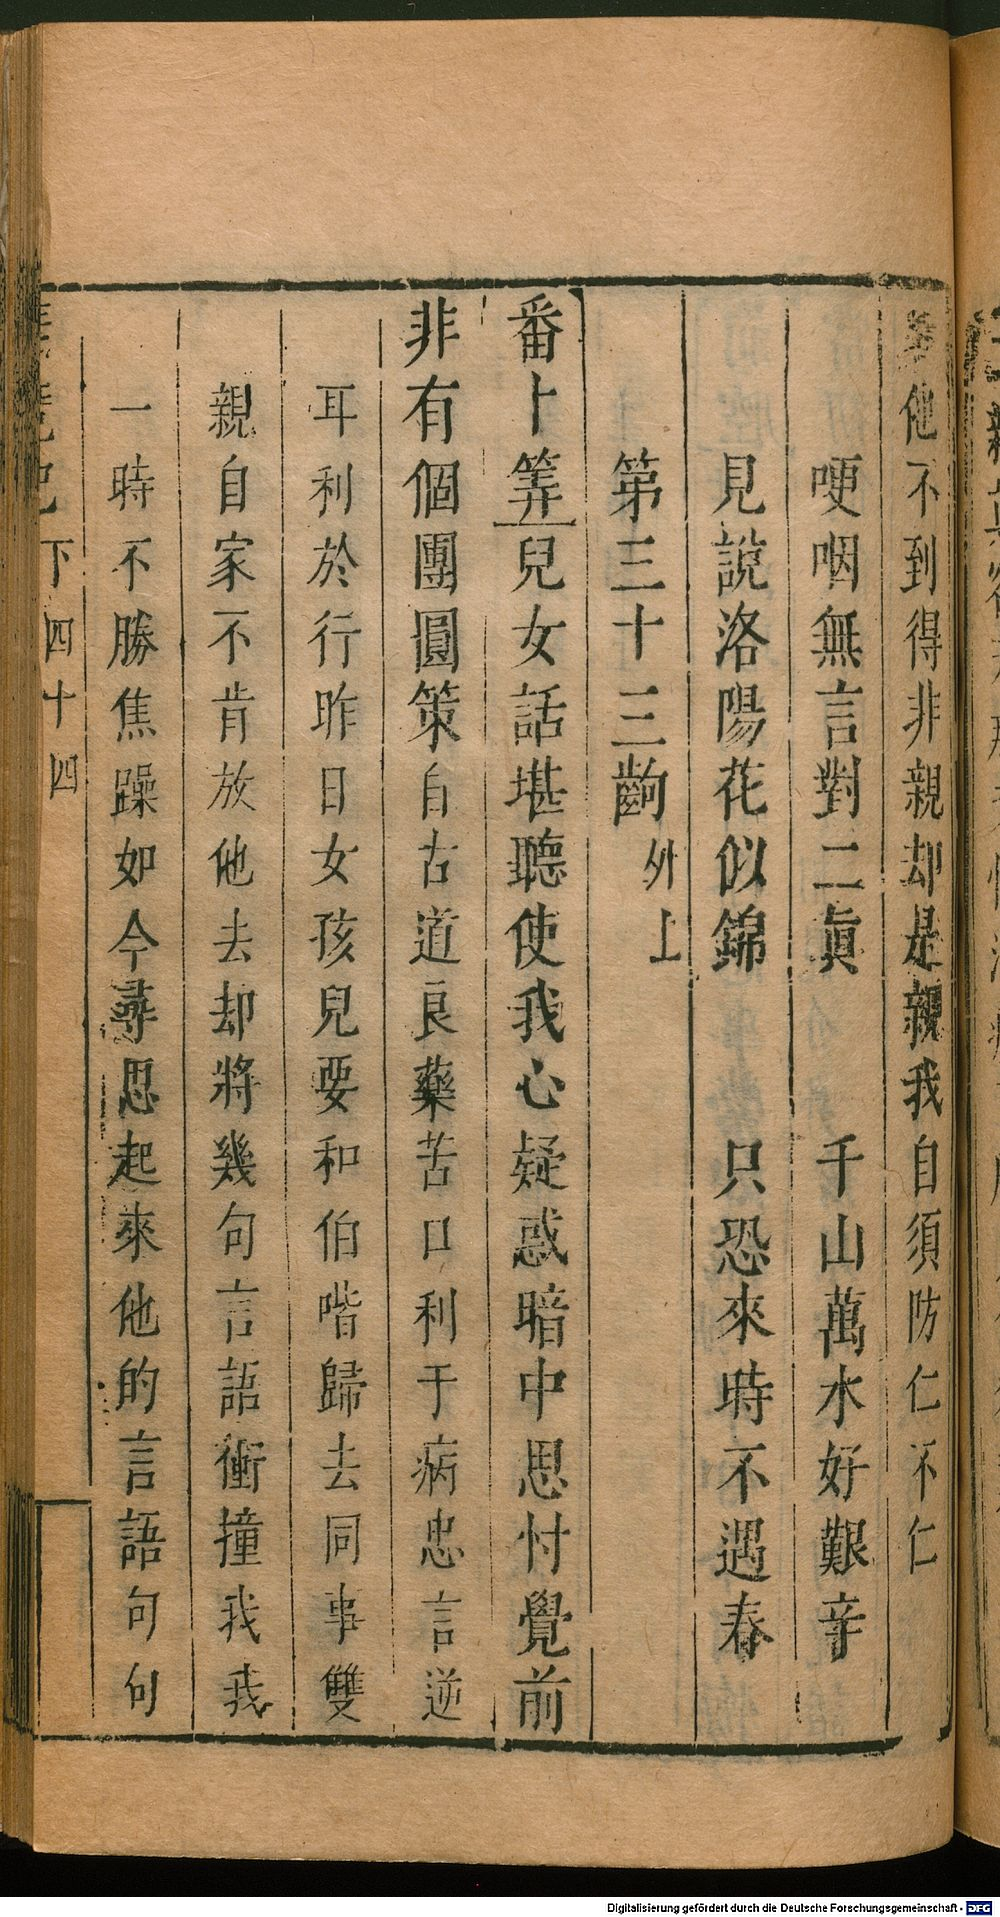 他不到得非親却是親我自須防仁不仁
哽咽無言對二眞　千山萬水好艱辛
見說洛陽花似錦　只恐來時不遇春
第三十三齣　外上
番卜筭兒女話堪聽使我心疑惑暗中思忖覺前
非有個團圓策自古道良藥苦口利于病忠言逆
耳利於行昨日女孩兒要和伯喈歸去同事雙
親自家不肯放他去却將幾句言語衝撞我我
一時不勝焦躁如今尋思起來他的言語句句
下四十四
Digitalisierung gefördert durch die Deutsche Forschungsgemeinschaft - DFG